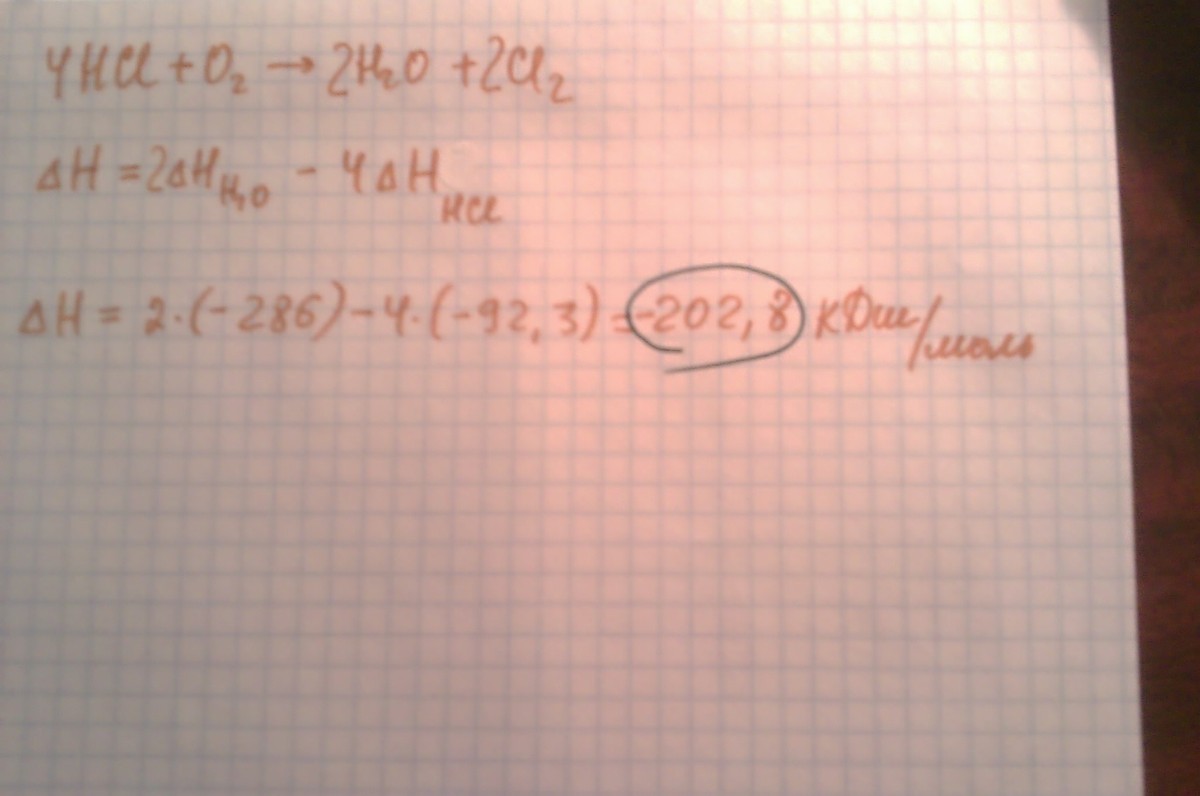 4HCl + O₂ → 2H₂O + 2Cl₂
ΔH = 2ΔH H₂O - 4ΔH HCl
ΔH = 2·(-286) - 4·(-92,3) = -202,8 кДж/моль